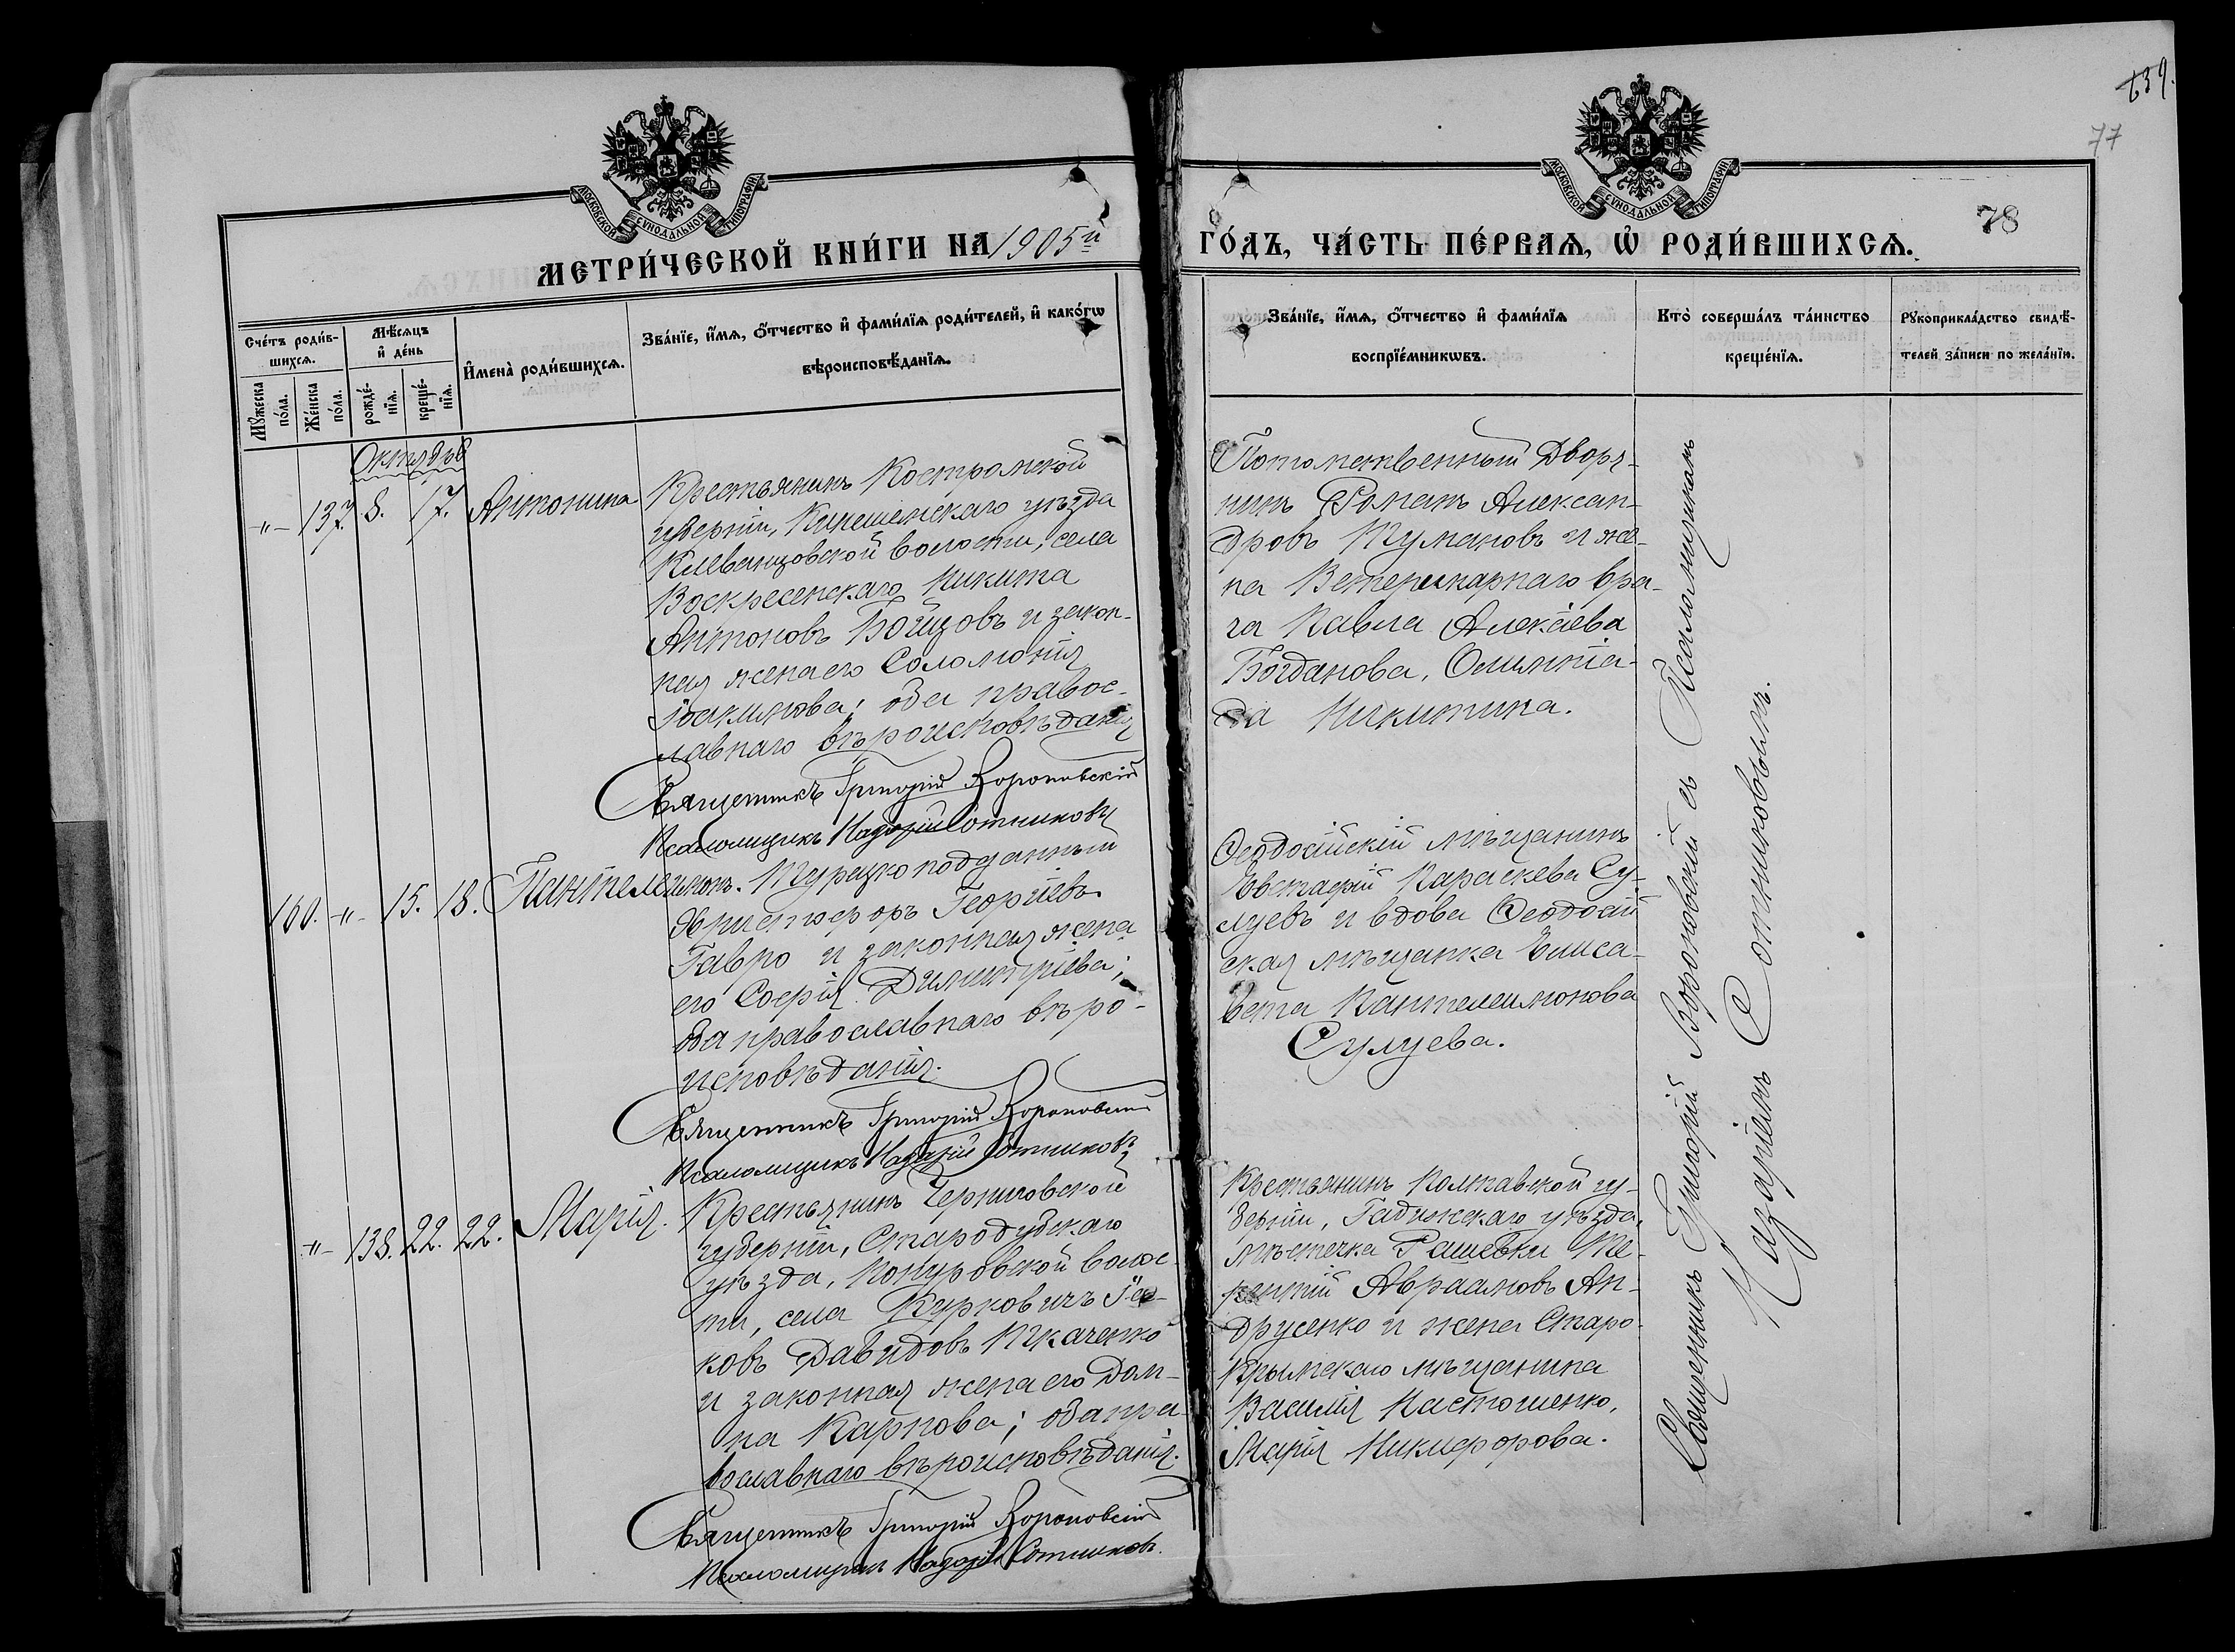 139.
77
78
МОСКОВСКОЙ СѴНОДАЛЬНОЙ ТИПОГРАФІИ
МОСКОВСКОЙ СѴНОДАЛЬНОЙ ТИПОГРАФІИ
МЕТРИ́ЧЕСКОЙ КНИ́ГИ НА 1905й
ГО́ДЪ, ЧА́СТЬ ПЕ́РВАЯ, Ѡ҆ РОДИ́ВШИХСЯ.
Сче́тъ роди́в-
шихся.
Мꙋ́жеска по́ла.
Же́нска по́ла.
Мѣ́сяцъ и҆ де́нь
рожде́-нїя.
креще́-нїя.
И҆мена̀ роди́вшихся.
Зва́нїе, и҆́мя, ѻ҆́тчество и҆ фами́лїя роди́телей, и҆ како́гѡ
вѣроисповѣ́данїя.
Зва́нїе, и҆́мя, ѻ҆́тчество и҆ фами́лїя
воспрїе́мникѡвъ.
Кто̀ соверша́лъ та́инство
креще́нїя.
Рꙋкоприкла́дство свидѣ́-
телей за́писи по жела́нїю.
Октябрь
-"- 137. 8. 17. Антонина
Крестьянинъ Костромской
губерніи, Кинешемскаго уѣзда
Клеванцовской волости, села
Воскресенскаго Никита
Антоновъ Бойцовъ и закон-
ная жена его Соломонія
Іоакимова; оба правос-
лавнаго вѣроисповѣданія
Священникъ Григорій Вороновскій
Псаломщикъ Назарій Сотниковъ
Потомственный Дворя-
нинъ Романъ Алексан-
дровъ Тумановъ и же-
на Ветеринарнаго вра-
ча Павла Алексѣева
Богданова, Олимпіа-
да Никитина.
160. -"- 15. 18. Пантелеимонъ.
Турецко подданный
Христофоръ Георгіевъ
Гавро и законная жена
его Софія Димитріева;
оба православнаго вѣро-
исповѣданія.
Священникъ Григорій Вороновскій
Псаломщикъ Назарій Сотниковъ
Ѳеодосійскій мѣщанинъ
Евстафій Параскева Су-
луевъ и вдова Ѳеодосій
ская мѣщанка Елиса-
вета Пантелеимонова
Сулуева.
-"- 138. 22. 22. Марія.
Крестьянинъ Черниговской
губерніи, Стародубскаго
уѣзда, Понуровской волос-
ти, села Курковичъ Іа-
ковъ Давидовъ Ткаченко
и законная жена его Дом-
на Карпова; оба пра-
вославнаго вѣроисповѣданія.
Священникъ Григорій Вороновскій
Псаломщикъ Назарій Сотниковъ.
Крестьянинъ Полтавской гу-
берніи, Гадячскаго уѣзда,
мѣстечка Рашевки Те-
рентій Авраамовъ Ан-
друсенко и жена Старо-
Крымскаго мѣщанина
Василія Пастошенко,
Марія Никифорова.
Священникъ Григорій Вороновскій съ Псаломщикомъ
Назаріемъ Сотниковымъ.